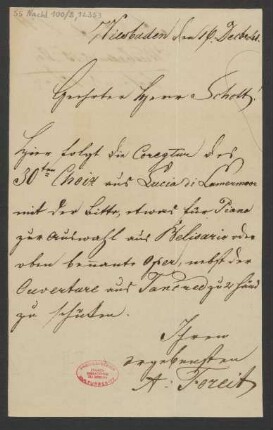 55 Nachl 100/B,
Wiesbaden den 19 Decbr
Geehrter Herr Schott!
Hier folgt die Corectur des
30ten Choix aus Lucia di Lamermoor
mit der Bitte, etwas für Piano
zur Auswahl aus Belisario oder
oben benannte Oper, nebst der
Ouverture aus Tancred zu 2 Händ
zu schicken.
Ihren
ergebensten
A.